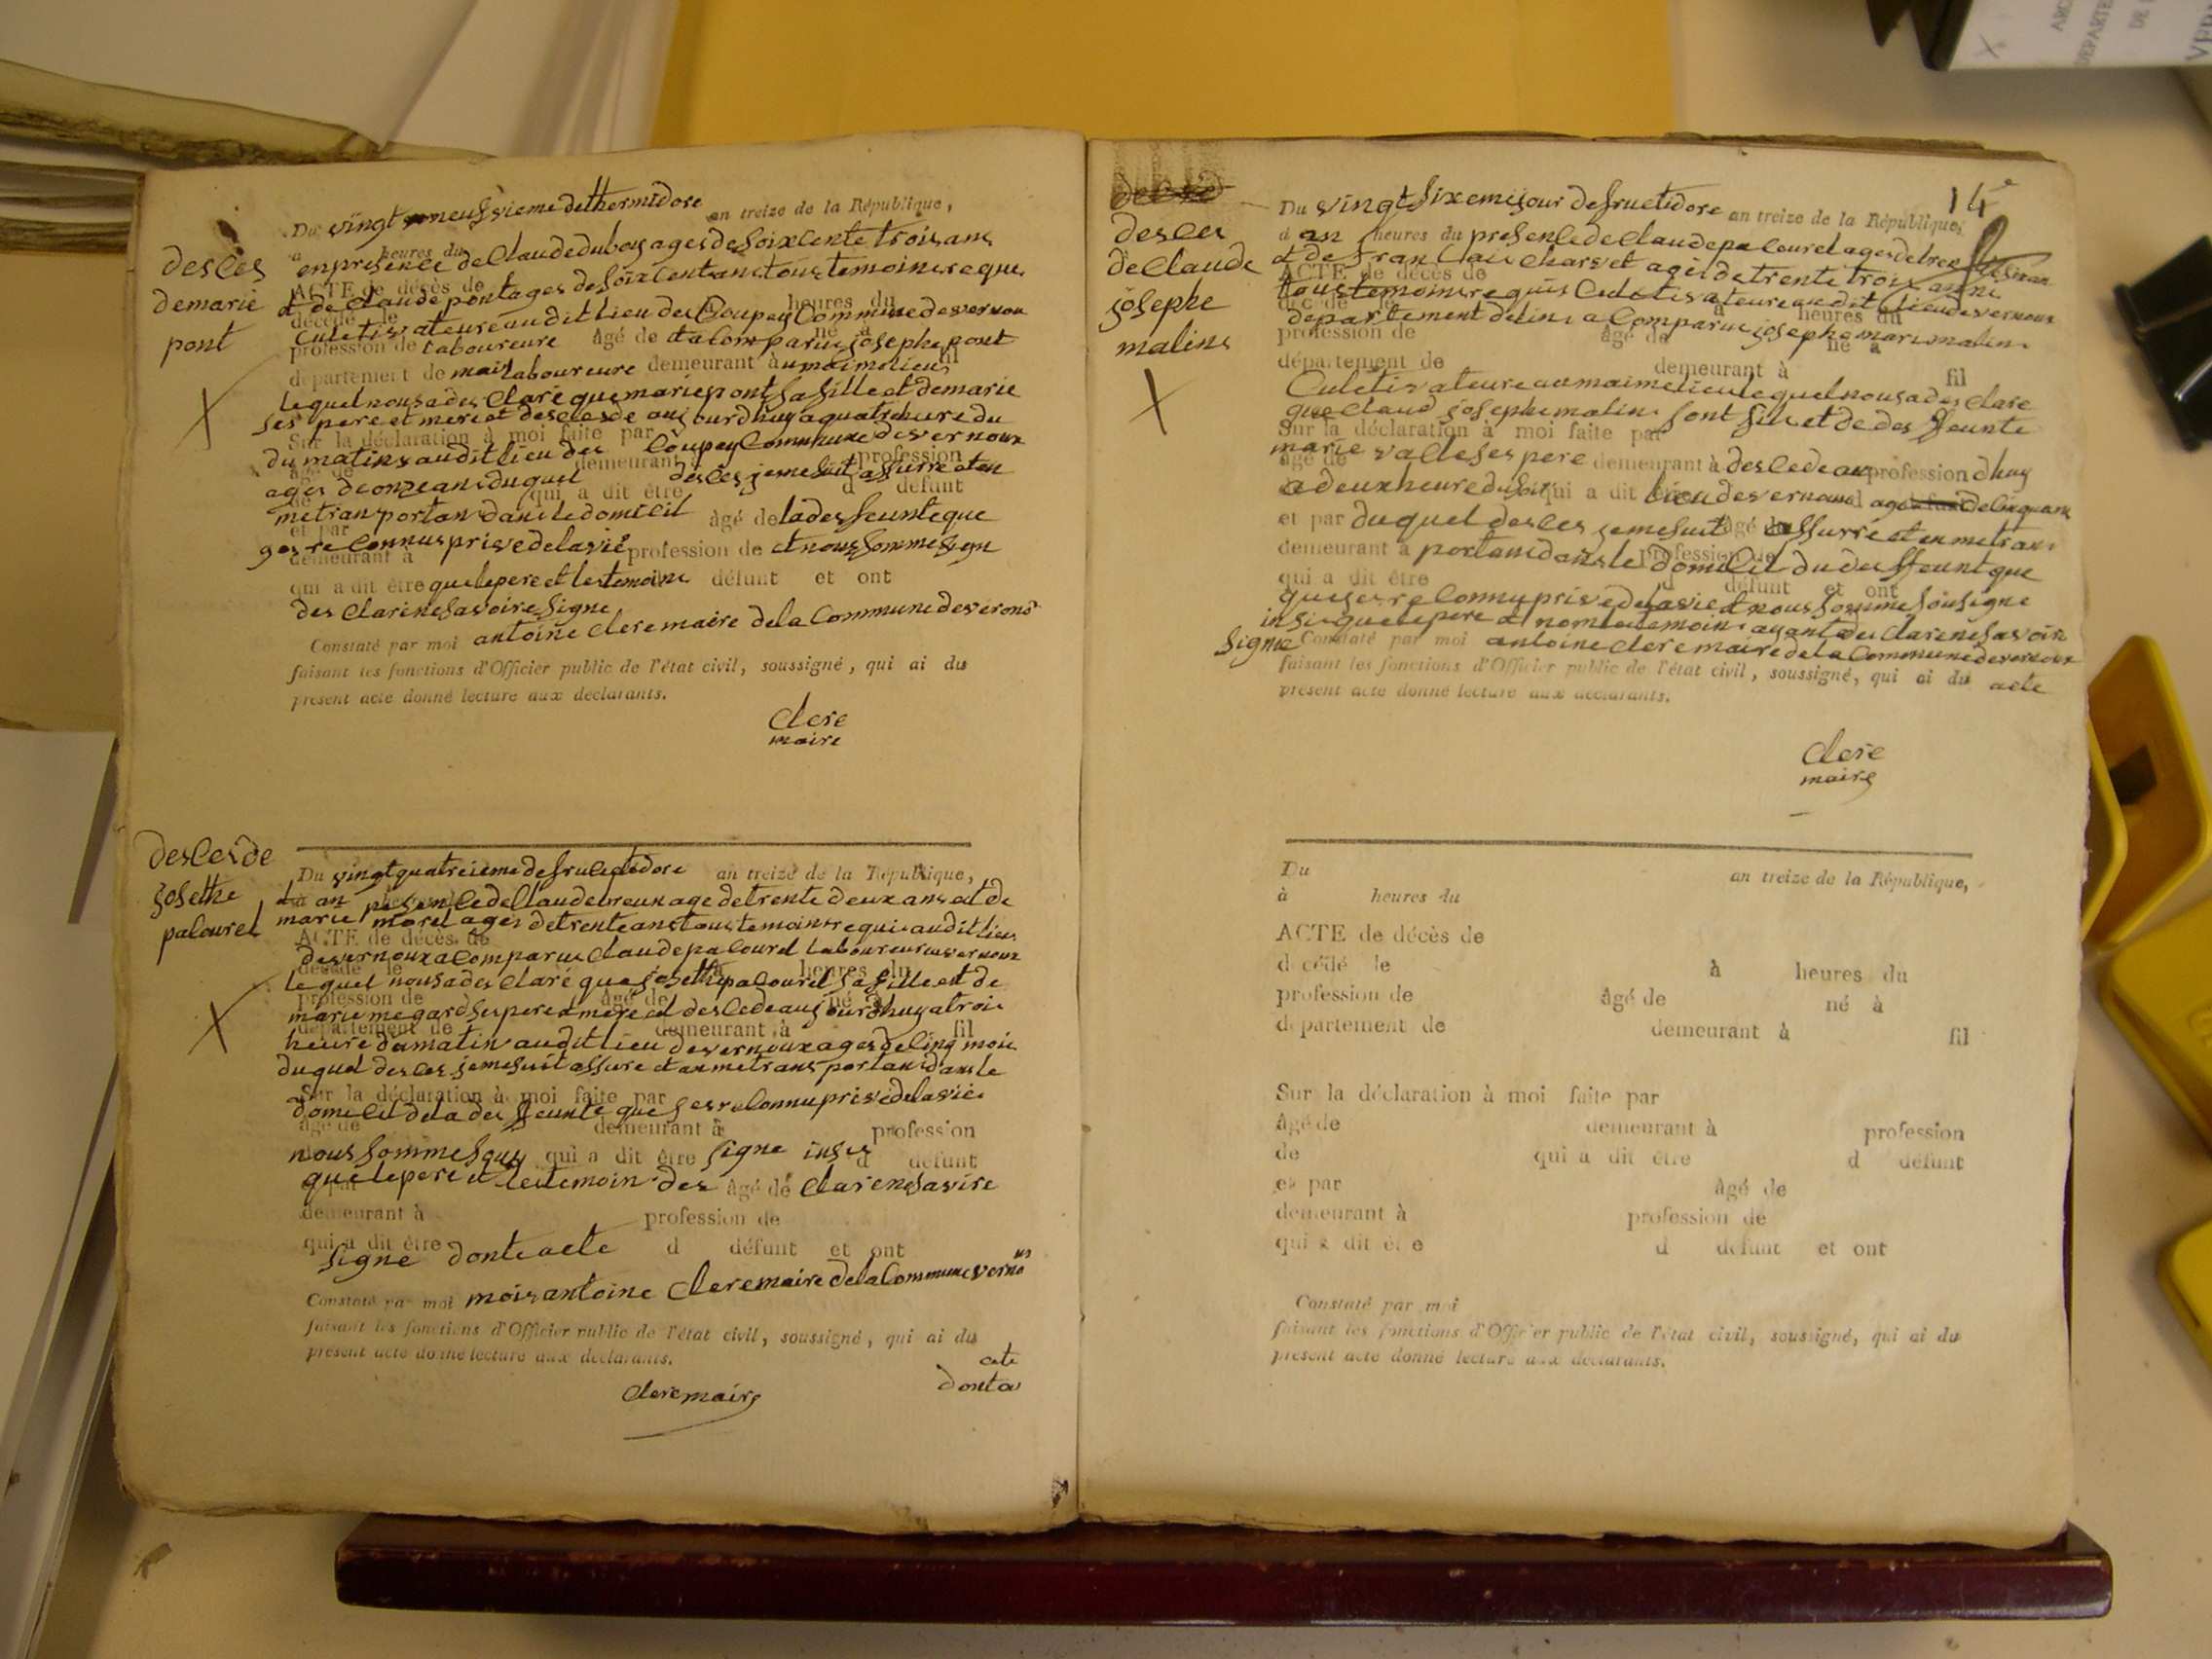 desces
demarie
pont
Du vingt neufvieme dethermidore an treize de la République,
à heures du
enpresence de Claude dubois ages de soixcente trois ans
ACTE de décès de
et de Claude pont ages de soixcent ans tous temoins reque
décédé le heures du
Culetivateure audit lieu des Coupey Commune desvernoux
profession de laboureure âgé de et a Comparue josephe pont né à
département de mais laboureure demeurant à aumaime lieu fil
lequel nous a des Claré que marie pont sa fille et de marie
ses pere et mere et descesde aujourdhuy a quatre heure du
Sur la déclaration à moi faite par
du matins audit lieu des Coupey Commune desvernoux
âgé de demeurant à profession
ages de onze ans duquel desces jemesuit assurre et en
de qui a dit être d défunt
metran portan dans le domicil âgé de ladesfeunte que
et par
ges reconnus prive de la vie profession de et nous sommes sign
demeurant à
qui a dit être que le pere et les temoins défunt et ont
des Clarénesavoire signe
Constaté par moi antoine Clere maire de la Commune desvernoux
faisant les fonctions d'Officier public de l'état civil, soussigné, qui ai du
présent acte donné lecture aux déclarants.
Clere
maire
desces de
josethe
palourel
Du vingt quatreieme de fructidore an treize de la République,
marie morel ages de trente ans tous temoins requis audit lieu
ACTE de décès de
desvernoux a Comparue Claude palourel laboureur
décédé le à heures du
lequel nous a des Claré que josethe palourel sa fille et de
profession de âgé de né à
marie megard ses pere et mere et descede aujourdhuy a trois
département de demeurant à fil
heure du matin audit lieu desvernoux ages de cinq mois
duquel desces jemesuit assure et en metrans portans dans le
Sur la déclaration à moi faite par
domicil de la desfeunte que ges reconnu prive de la vie
âgé de demeurant à profession
nous sommes qui a dit être signe insis d défunt
que le pere et les temoin des âgé de Clarenesavire
demeurant à profession de
qui a dit être d défunt et ont
signe dont acte
Constaté par moi mois antoine Clere maire de la Commune vernoux
faisant les fonctions d'Officier public de l'état civil, soussigné, qui ai du
présent acte donné lecture aux déclarants.
acte
dont a
Clere maire
14e
desces
de Claude
josephe
malins
Du vingt sixeme jour de fructidore an treize de la République,
à an heures du presence de Claude palourel ages de
ACTE de décès de
et de françois Charvet ages de trente trois ans
tous temoins requis Culetivateure audit lieu desvernoux
décédé le à heures du
departement de lins a Comparue josephe mari malins
profession de âgé de né à
département de demeurant à fil
Culetivateure aumaime lieu lequel nous a des clare
que Claud josephe malins sont fils et de des feunte
Sur la déclaration à moi faite par
marie valle ses pere demeurant à descede au profession dhuy
âgé de
a deux heure du soir qui a dit lieu desvernoux age de cinq ans
et par duquel desces jemesuit âgé assurré et en metran
demeurant à portans dans le domicil du desfeunt que
profession de
qui a dit être d défunt et ont
que ges reconnu prive de la vie et nous somme soussigne
insi que le pere et nomé temoins ayant des Clarenesavoire
signe Constaté par moi antoine Clere maire de la Commune desvernoux
faisant les fonctions d'Officier public de l'état civil, soussigné, qui ai du acte
présent acte donné lecture aux déclarants.
Clere
maire
Du an treize de la République,
à heures du
ACTE de décès de
décédé le à heures du
profession de âgé de né à
département de demeurant à fil
Sur la déclaration à moi faite par
âgé de demeurant à profession
de qui a dit être d défunt
et par âgé de
demeurant à profession de
qui a dit être d défunt et ont
Constaté par moi
faisant les fonctions d'Officier public de l'état civil, soussigné, qui ai du
présent acte donné lecture aux déclarants.